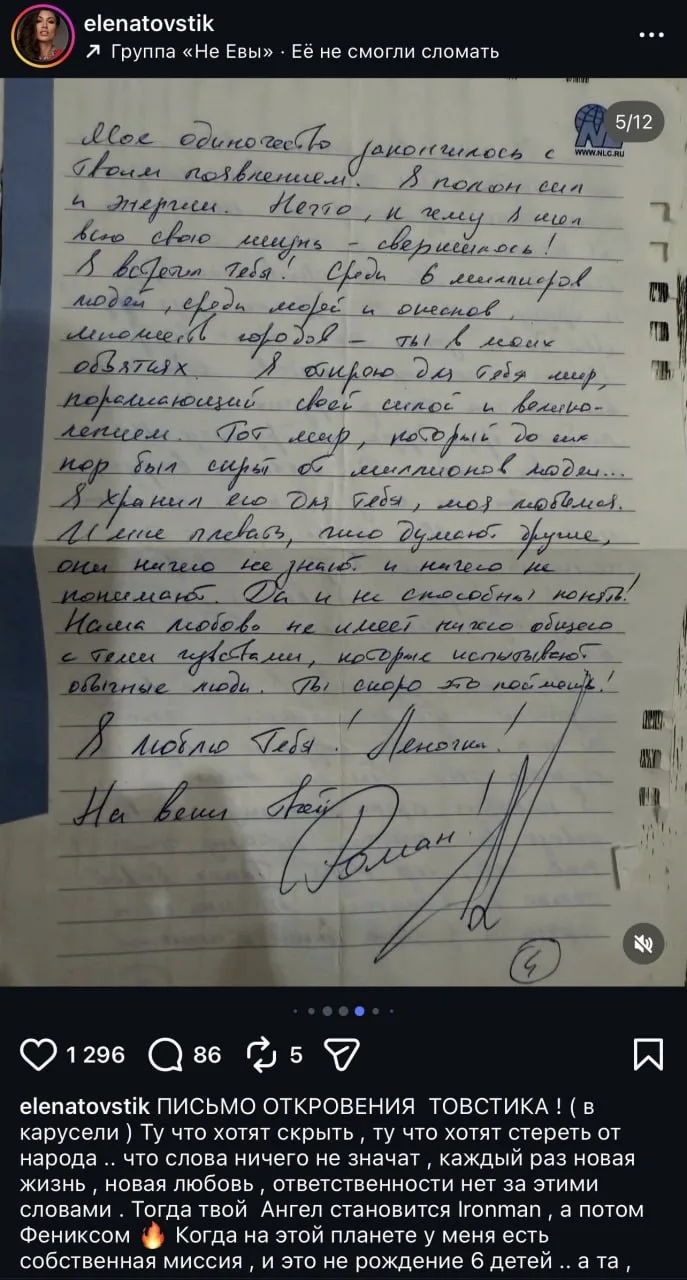 elenatovstik
Группа «Не Евы» · Её не смогли сломать
5/12
WWW.NLC.RU
Мое одиночество закончилось с
твоим появлением. Я полон сил
и энергии. Нечто, к чему я шел
всю свою жизнь – свершилось!
Я встретил тебя! Среди 6 миллиардов
людей, среди морей и океанов,
множеств городов – ты в моих
объятиях. Я открою для тебя мир,
поражающий своей силой и велико-
лепием. Тот мир, который до сих
пор был скрыт от миллионов людей...
Я хранил его для тебя, моя любимая.
И мне плевать, что думают другие,
они ничего не знают и ничего не
понимают. Да и не способны понять!
Наша любовь не имеет ничего общего
с теми чувствами, которые испытывают
обычные люди. Ты скоро это поймешь!
Я люблю Тебя! Леночка!
На веки твой
Роман!
4
1 296 86 5
elenatovstik ПИСЬМО ОТКРОВЕНИЯ ТОВСТИКА ! ( в
карусели ) Ту что хотят скрыть , ту что хотят стереть от
народа .. что слова ничего не значат , каждый раз новая
жизнь , новая любовь , ответственности нет за этими
словами . Тогда твой Ангел становится Ironman , а потом
Фениксом 🔥 Когда на этой планете у меня есть
собственная миссия , и это не рождение 6 детей .. а та ,